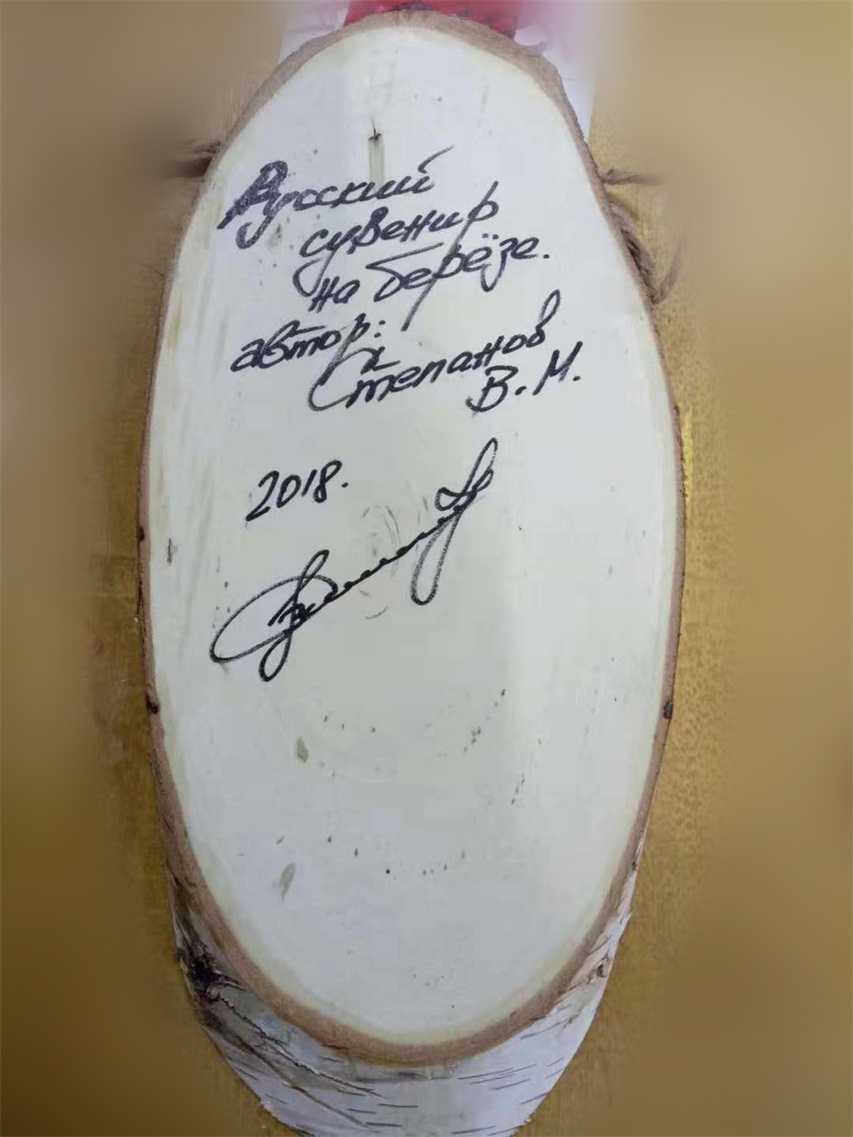 Русский
сувенир
на берёзе.
автор:
Степанов
В. М.
2018.